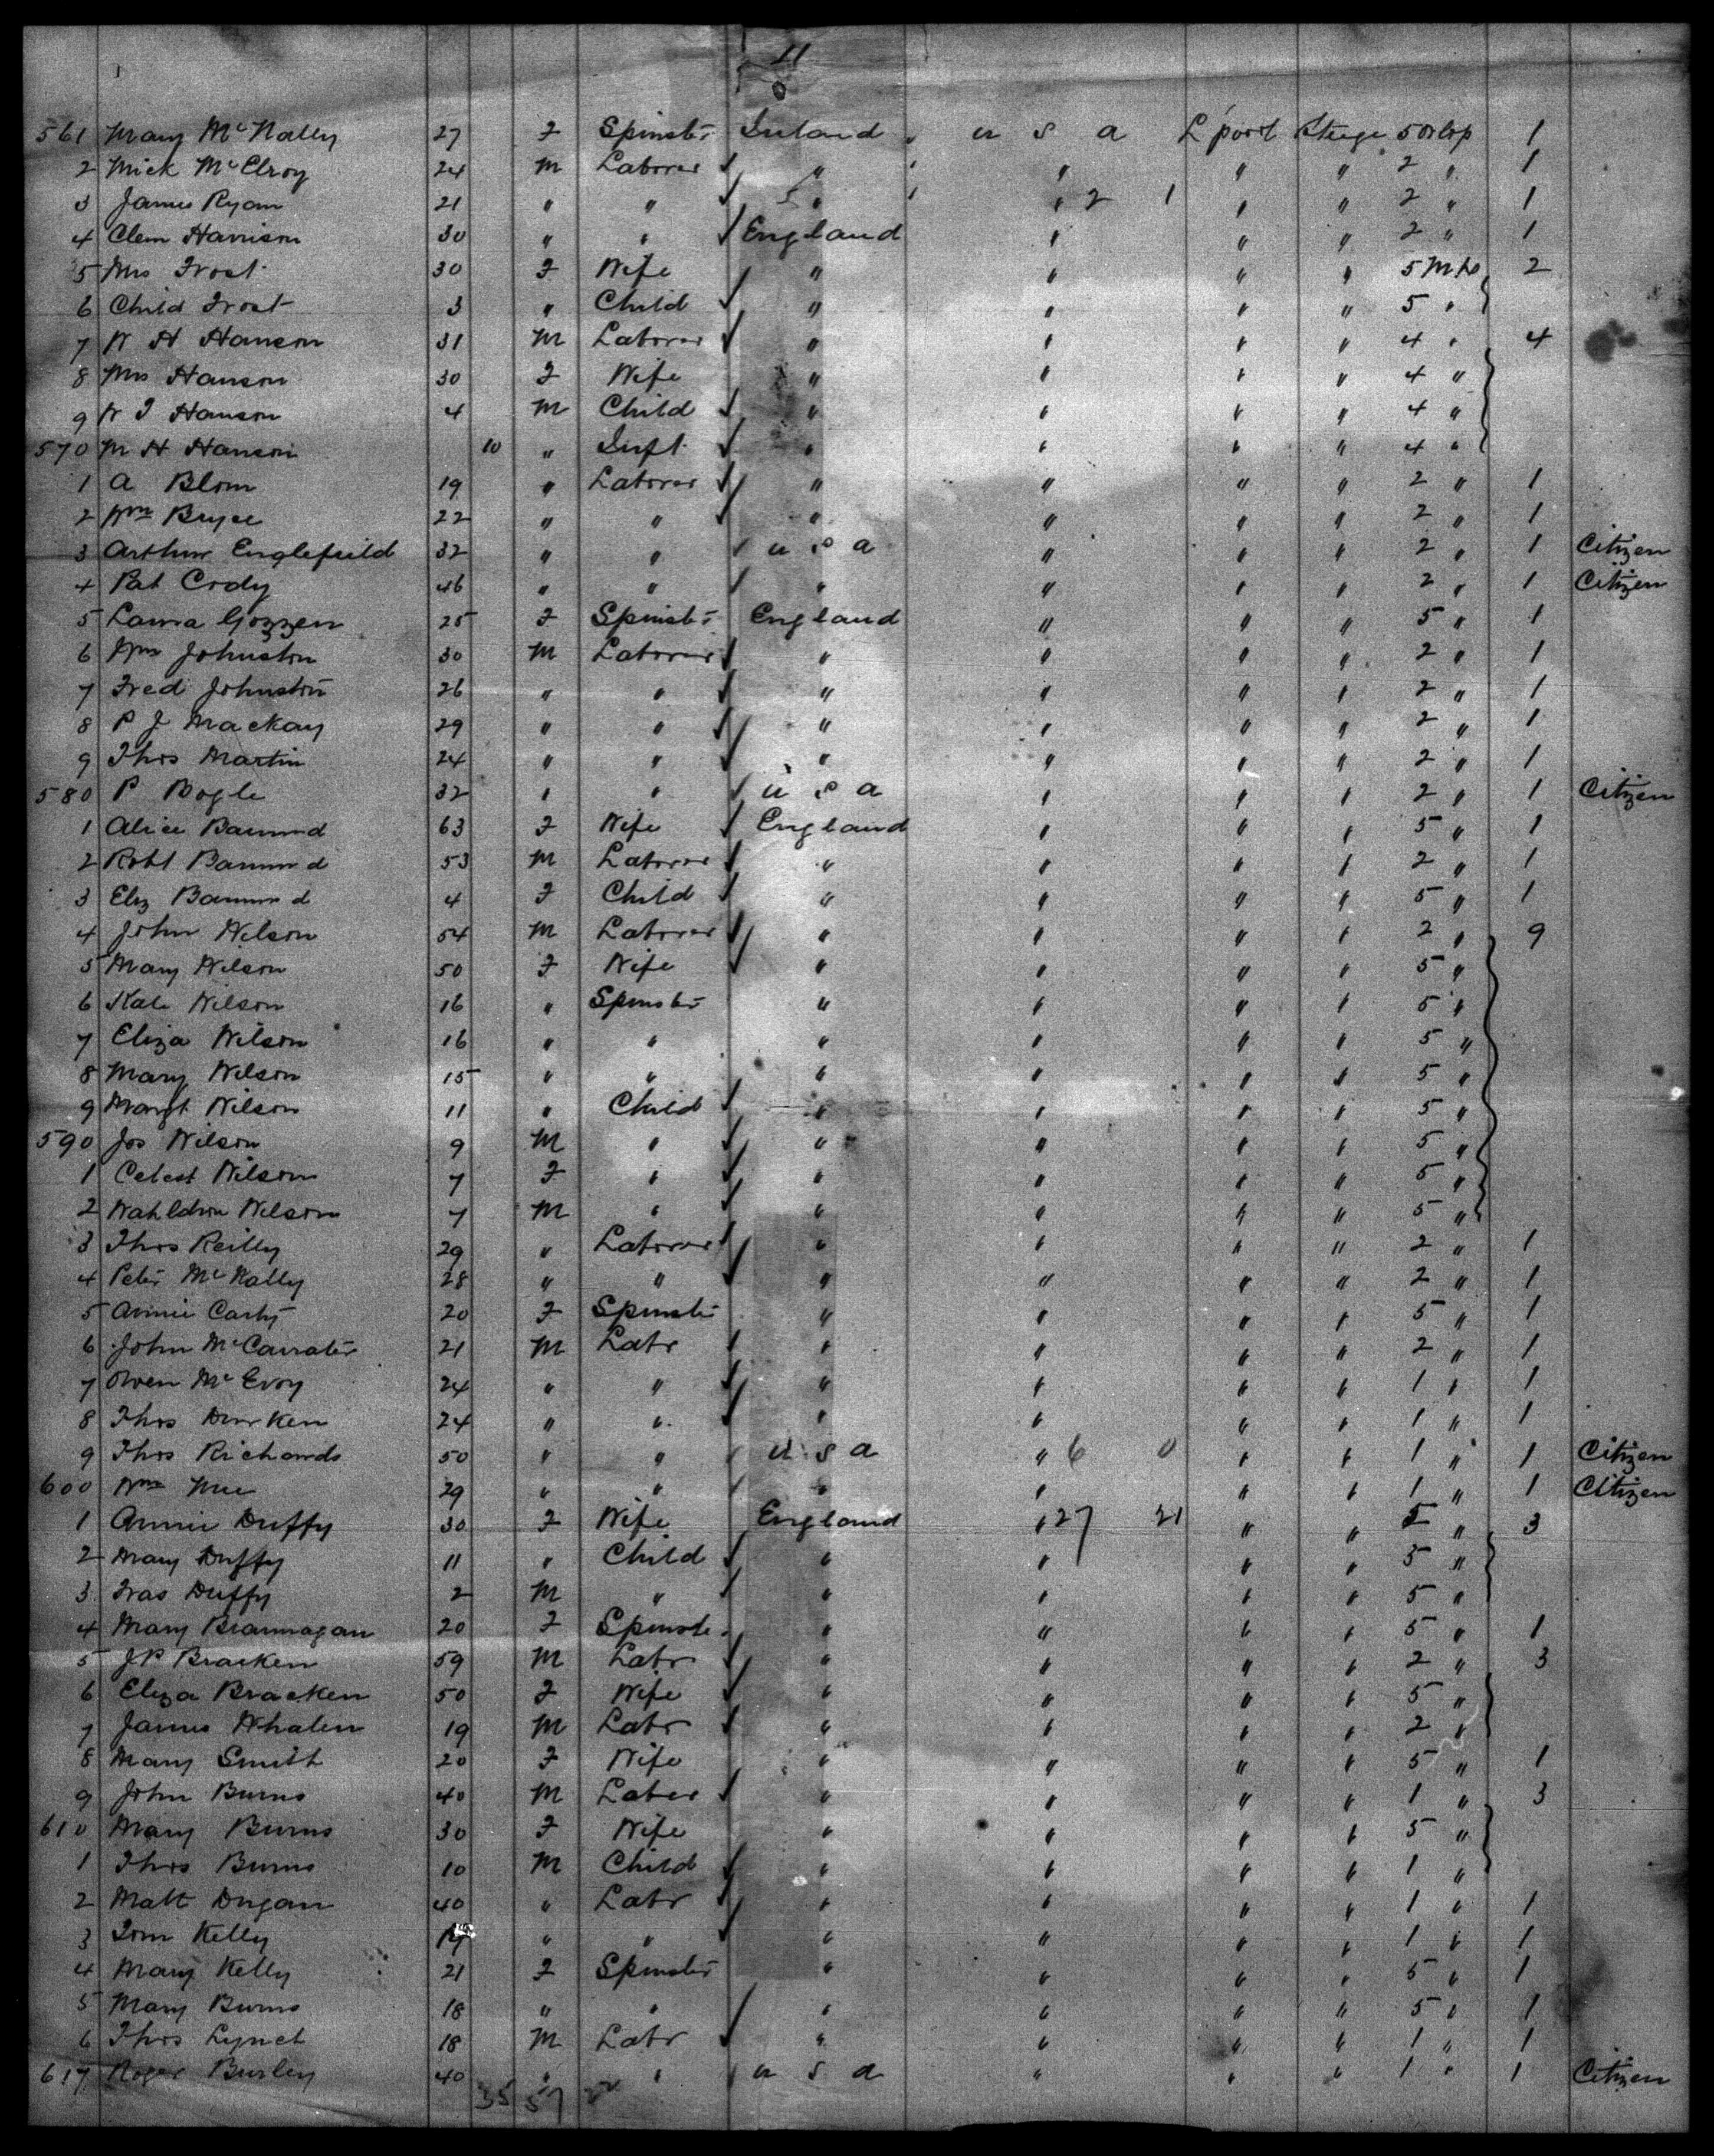 11
561 Mary McNally 27 F Spinstr Ireland " U S A L'pool Steege 5 Orlop 1
2 Mick McElroy 24 M Laborer " " " " 2 " 1
3 James Ryan 21 " " " " 2 1 " " 2 " 1
4 Clem Harrison 30 " " England " " " 2 " 1
5 Mrs Frost 30 F Wife " " " " 5 M 2
6 Child Frost 3 " Child " " " " 5 "
7 W H Hanson 31 M Laborer " " " " 4 " 4
8 Mrs Hanson 30 F Wife " " " " 4 "
9 W F Hanson 4 M Child " " " " 4 "
570 M H Hanson 10 " Inft " " " " 4 "
1 A Blom 19 " Laborer " " " " 2 " 1
2 Wm Bryce 22 " " " " " " 2 " 1
3 Arthur Englefield 32 " " U S A " " " 2 " 1 Citizen
4 Pat Cody 46 " " " " " " 2 " 1 Citizen
5 Laura Gozzen 25 F Spinstr England " " " 5 " 1
6 Wm Johnston 30 M Laborer " " " " 2 " 1
7 Fred Johnston 26 " " " " " " 2 " 1
8 P J Mackay 29 " " " " " " 2 " 1
9 Thos Martin 24 " " " " " " 2 " 1
580 P Bogle 32 " " U S A " " " 2 " 1 Citizen
1 Alice 63 F Wife England " " " 5 " 1
2 Robt 53 M Laborer " " " " 2 " 1
3 Eliz 4 F Child " " " " 5 " 1
4 John Wilson 54 M Laborer " " " " 2 " 9
5 Mary Wilson 50 F Wife " " " " 5 "
6 Kate Wilson 16 " Spinster " " " " 5 "
7 Eliza Wilson 16 " " " " " " 5 "
8 Mary Wilson 15 " " " " " " 5 "
9 Margt Wilson 11 " Child " " " " 5 "
590 Jos Wilson 9 M " " " " " 5 "
1 Celest Wilson 7 F " " " " " 5 "
2 Wahldron Wilson 7 M " " " " " 5 "
3 Thos Reilly 29 " Laborer " " " " 2 " 1
4 Peter McNally 28 " " " " " " 2 " 1
5 Annie Carty 20 F Spinster " " " " 5 " 1
6 John 21 M Labr " " " " 2 " 1
7 Owen McEvoy 24 " " " " " " 1 " 1
8 Thos Durken 24 " " " " " " 1 " 1
9 Thos Richards 50 " " U S A " 6 0 " " 1 " 1 Citizen
600 Wm 29 " " " " " " 1 " 1 Citizen
1 Annie Duffy 30 F Wife England " 27 21 " " 5 " 3
2 Mary Duffy 11 " Child " " " " 5 "
3 Fras Duffy 2 M " " " " " 5 "
4 Mary Brannagan 20 F Spinste " " " " 5 " 1
5 JP Bracken 59 M Labr " " " " 2 " 3
6 Eliza Bracken 50 F Wife " " " " 5 "
7 James Whalen 19 M Labr " " " " 2 "
8 Mary Smith 20 F Wife " " " " 5 " 1
9 John Burns 40 M Laber " " " " 1 " 3
610 Mary Burns 30 F Wife " " " " 5 "
1 Thos Burns 10 M Child " " " " 1 "
2 Matt Dugan 40 " Labr " " " " 1 " 1
3 Tom Kelly 19 " " " " " " 1 " 1
4 Mary Kelly 21 F Spinster " " " " 5 " 1
5 Mary Burns 18 " " " " " " 5 " 1
6 Thos Lynch 18 M Labr " " " " 1 " 1
617 Roger Burley 40 " " U S A " " " 1 " 1 Citizen
35 57